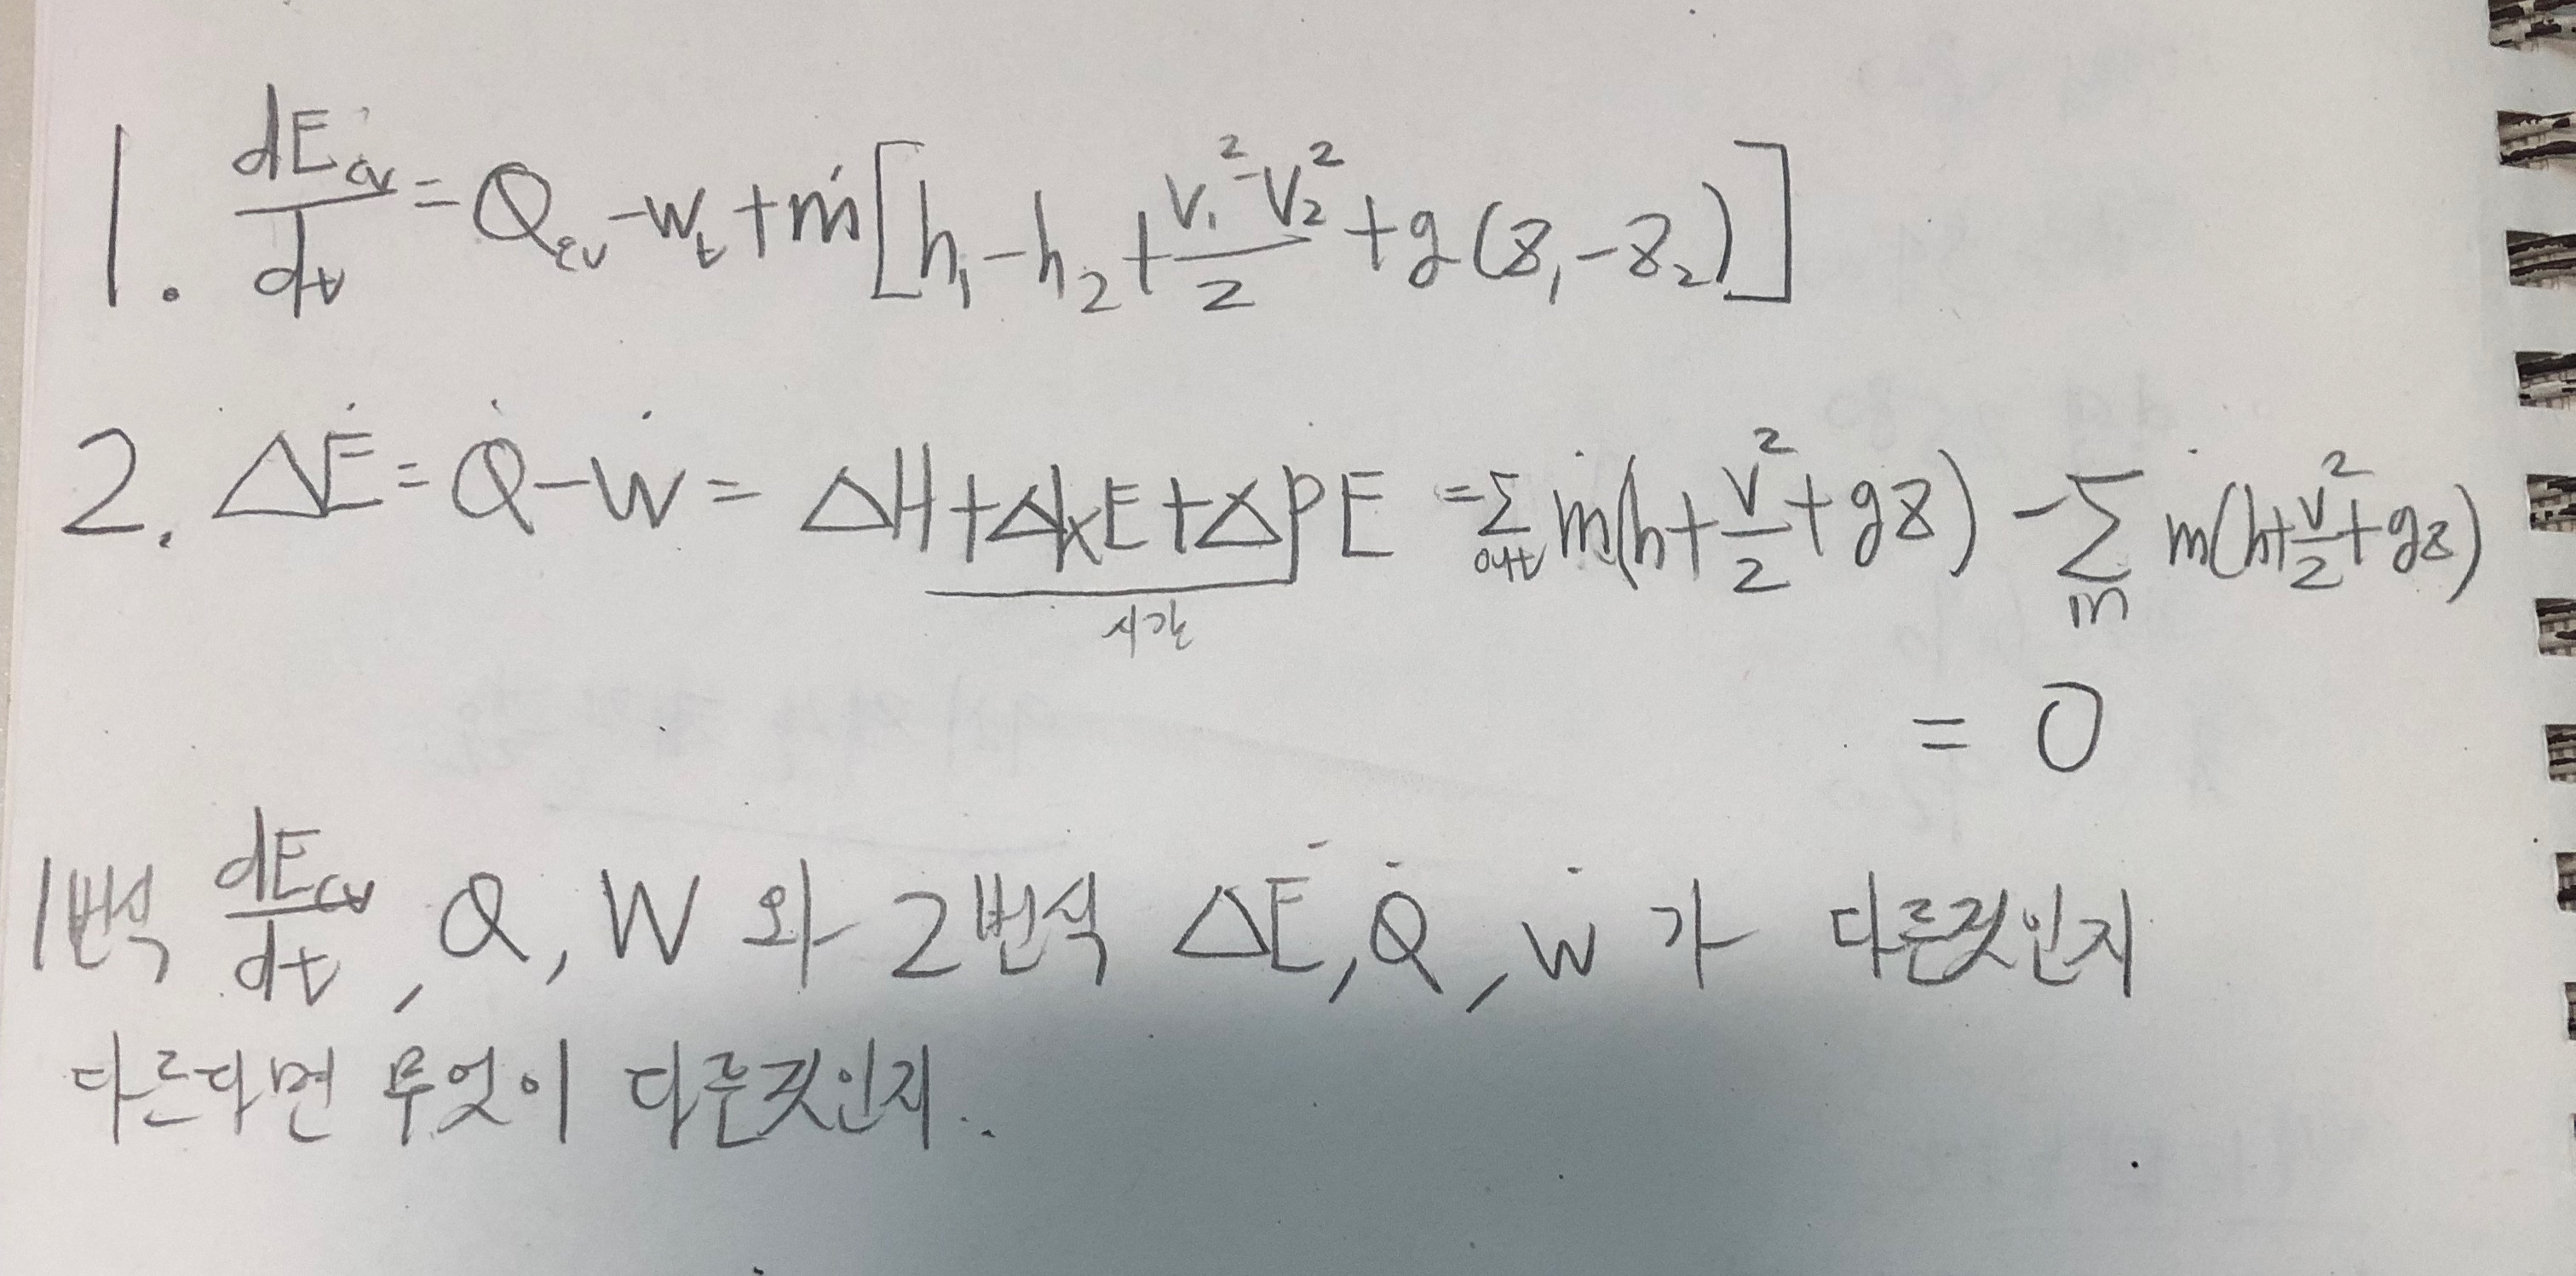 1. dE_cv/dt = Q_cv - W_t + ṁ[h₁ - h₂ + (V₁² - V₂²)/2 + g(z₁ - z₂)]
2. ΔĖ = Q̇ - Ẇ = ΔH + ΔKE + ΔPE = Σ_out ṁ(h + V²/2 + gz) - Σ_in ṁ(h + V²/2 + gz)
시간
= 0
1번식 dE_cv/dt, Q, W 와 2번식 ΔĖ, Q̇, Ẇ 가 다른것인지
다른다면 무엇이 다른것인지..